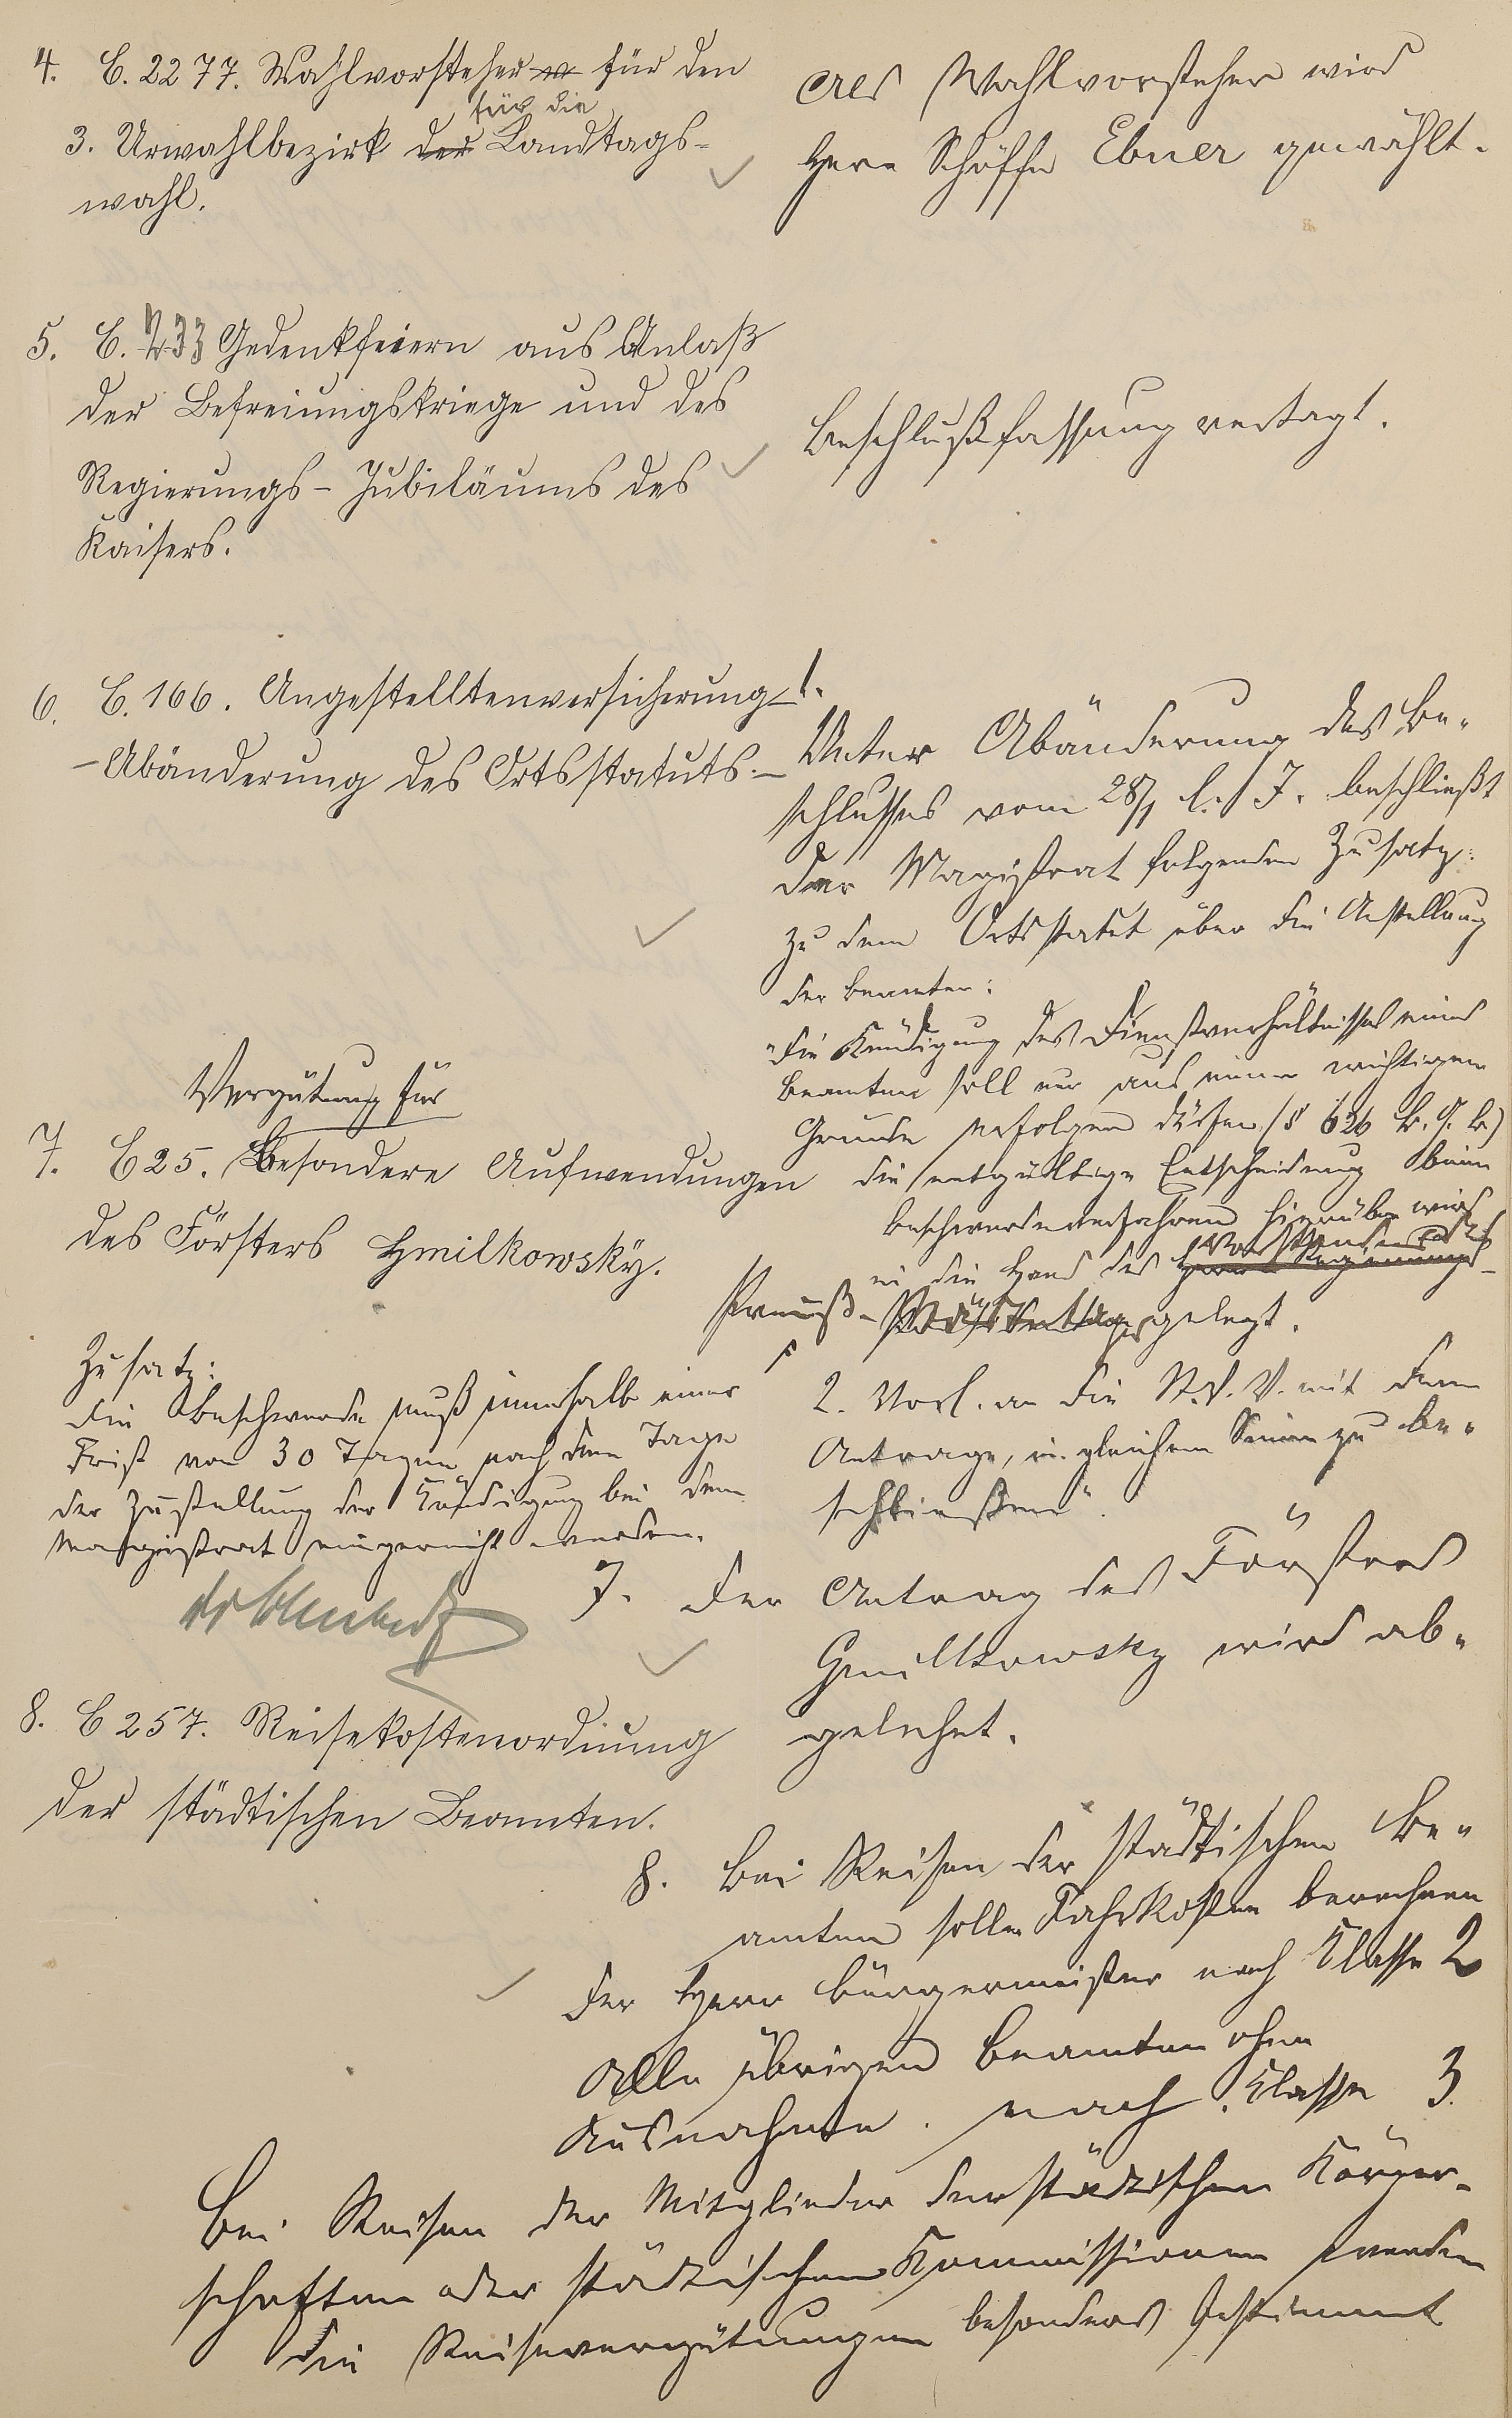 4. E. 2277. Wahlvorsteher für den
für die
3. Urwahlbezirk der Landtags-
wahl.
Als Wahlvorsteher wird
Herr Schöffe Ebner gewählt.
5. E. 233 Gedenkfeiern aus Anlaß
der Befreiungskriege und des
Regierungs-Jubiläums des
Kaisers.
Beschlußfassung vertagt.
6. E. 166. Angestelltenversicherung
-Abänderung des Ortsstatuts.-
1.
Unter Abänderung des Be-
schlusses vom 28/1 l. J. beschließt
der Magistrat folgenden Zusatz
zu dem Ortsstatut über die Anstellung
der Beamten:
"Die Kündigung des Dienstverhältnisses eines
Beamten soll nur aus einem wichtigen
Grunde erfolgen dürfen (§ 626 B.G.B.)
die entgültige Entscheidung beim
Beschwerdeverfahren hierüber wird
Vorsitzenden des
in die Hand des Herrn Regierungs-
Präsidenten gelegt.
2. Vorl. an die St.V.V. mit dem
Antrage, in gleichem Sinne zu be-
schließen".
Vergütung für
7. E 25. Besondere Aufwendungen
des Försters Gmilkowsky.
Zusatz:
Die Beschwerde muß innerhalb einer
Frist von 30 Tagen nach dem Tage
der Zustellung der Kündigung bei dem
Magistrat eingereicht werden.
7. Der Antrag des Försters
Gmilkowsky wird ab-
gelehnt.
8. E 257. Reisekostenordnung
der städtischen Beamten.
8. Bei Reisen der städtischen Be-
amten sollen Fahrkosten berechnen
der Herr Bürgermeister nach Klasse 2
Alle übrigen Beamten ohne
Ausnahme. nach Klasse 3.
Bei Reisen der Mitglieder der städtischen Körper-
schaften oder städtischen Kommissionen werden
die Reisevergütungen besonders bestimmt